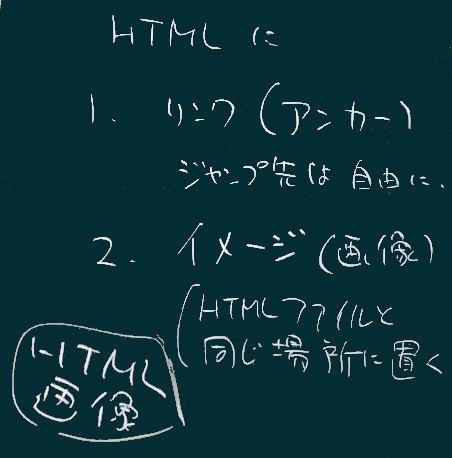 HTMLに
1. リンク(アンカー)
ジャンプ先は自由に.
2. イメージ(画像)
(HTMLファイルと
同じ場所に置く
HTML
画像